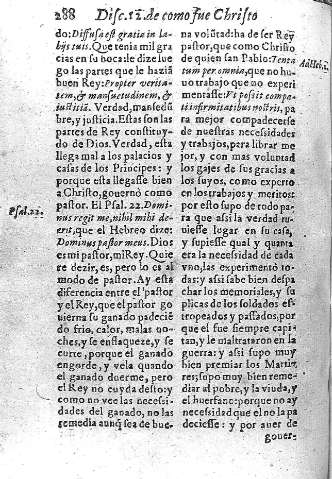 288 Disc.12.de como fue Christo
do: Diffusa est gratia in la-
bijs tuis. Que tenia mil gra
cias en su boca: le dize lue
go las partes que le haziã
buen Rey: Propter verita-
tem, & mansuetudinem, &
iustitiã. Verdad, mansedũ
bre, y justicia. Estas son las
partes de Rey constituy-
do de Dios. Verdad, esta
llega mal a los palacios y
casas de los Principes: y
porque esta llegasse bien
a Christo, governò como
pastor. El Psal. 22. Domi-
nus regit me, nihil mihi de-
erit, que el Hebreo dize:
Dominus pastor meus. Dios
es mi pastor, mi Rey. Quie
re dezir, es, pero lo es al
modo de pastor. Ay esta
diferencia entre el pastor
y el Rey, que el pastor go
uierna su ganado padeciẽ
do frio, calor, malas no-
ches, y se enflaqueze, y se
curte, porque el ganado
engorde, y vela quando
el ganado duerme, pero
el Rey no cuyda desto: y
como no vee las necessi-
dades del ganado, no las
remedia aunq̃ sea de bue-
Psal. 22.
na volũtad: ha de ser Rey
pastor, que como Christo
de quien san Pablo: Tenta
tum per omnia, que no hu-
uo trabajo que no experi
mentasse: Vt possit compa-
ti infirmitatibus nostris, pa-
ra mejor compadecerse
de nuestras necessidades
y trabajos, para librar me
jor, y con mas voluntad
los gajes de sus gracias a
los suyos, como experto
en los trabajos y meritos:
por esto supo de todo pa-
ra que assi la verdad tu-
uiesse lugar en su casa,
y supiesse qual y quanta
era la necessidad de cada
vno, las experimentò to-
das: y assi sabe bien despa
char los memoriales, y su
plicas de los soldados es-
tropeados y passados, por
que el fue siempre capi-
tan, y le maltrataron en la
guerra: y assi supo muy
bien premiar los Marti-
res; supo muy bien reme-
diar al pobre, y la viuda, y
el huerfano: porque no ay
necessidad que el no la pa
deciesse: y por auer de
gouer-